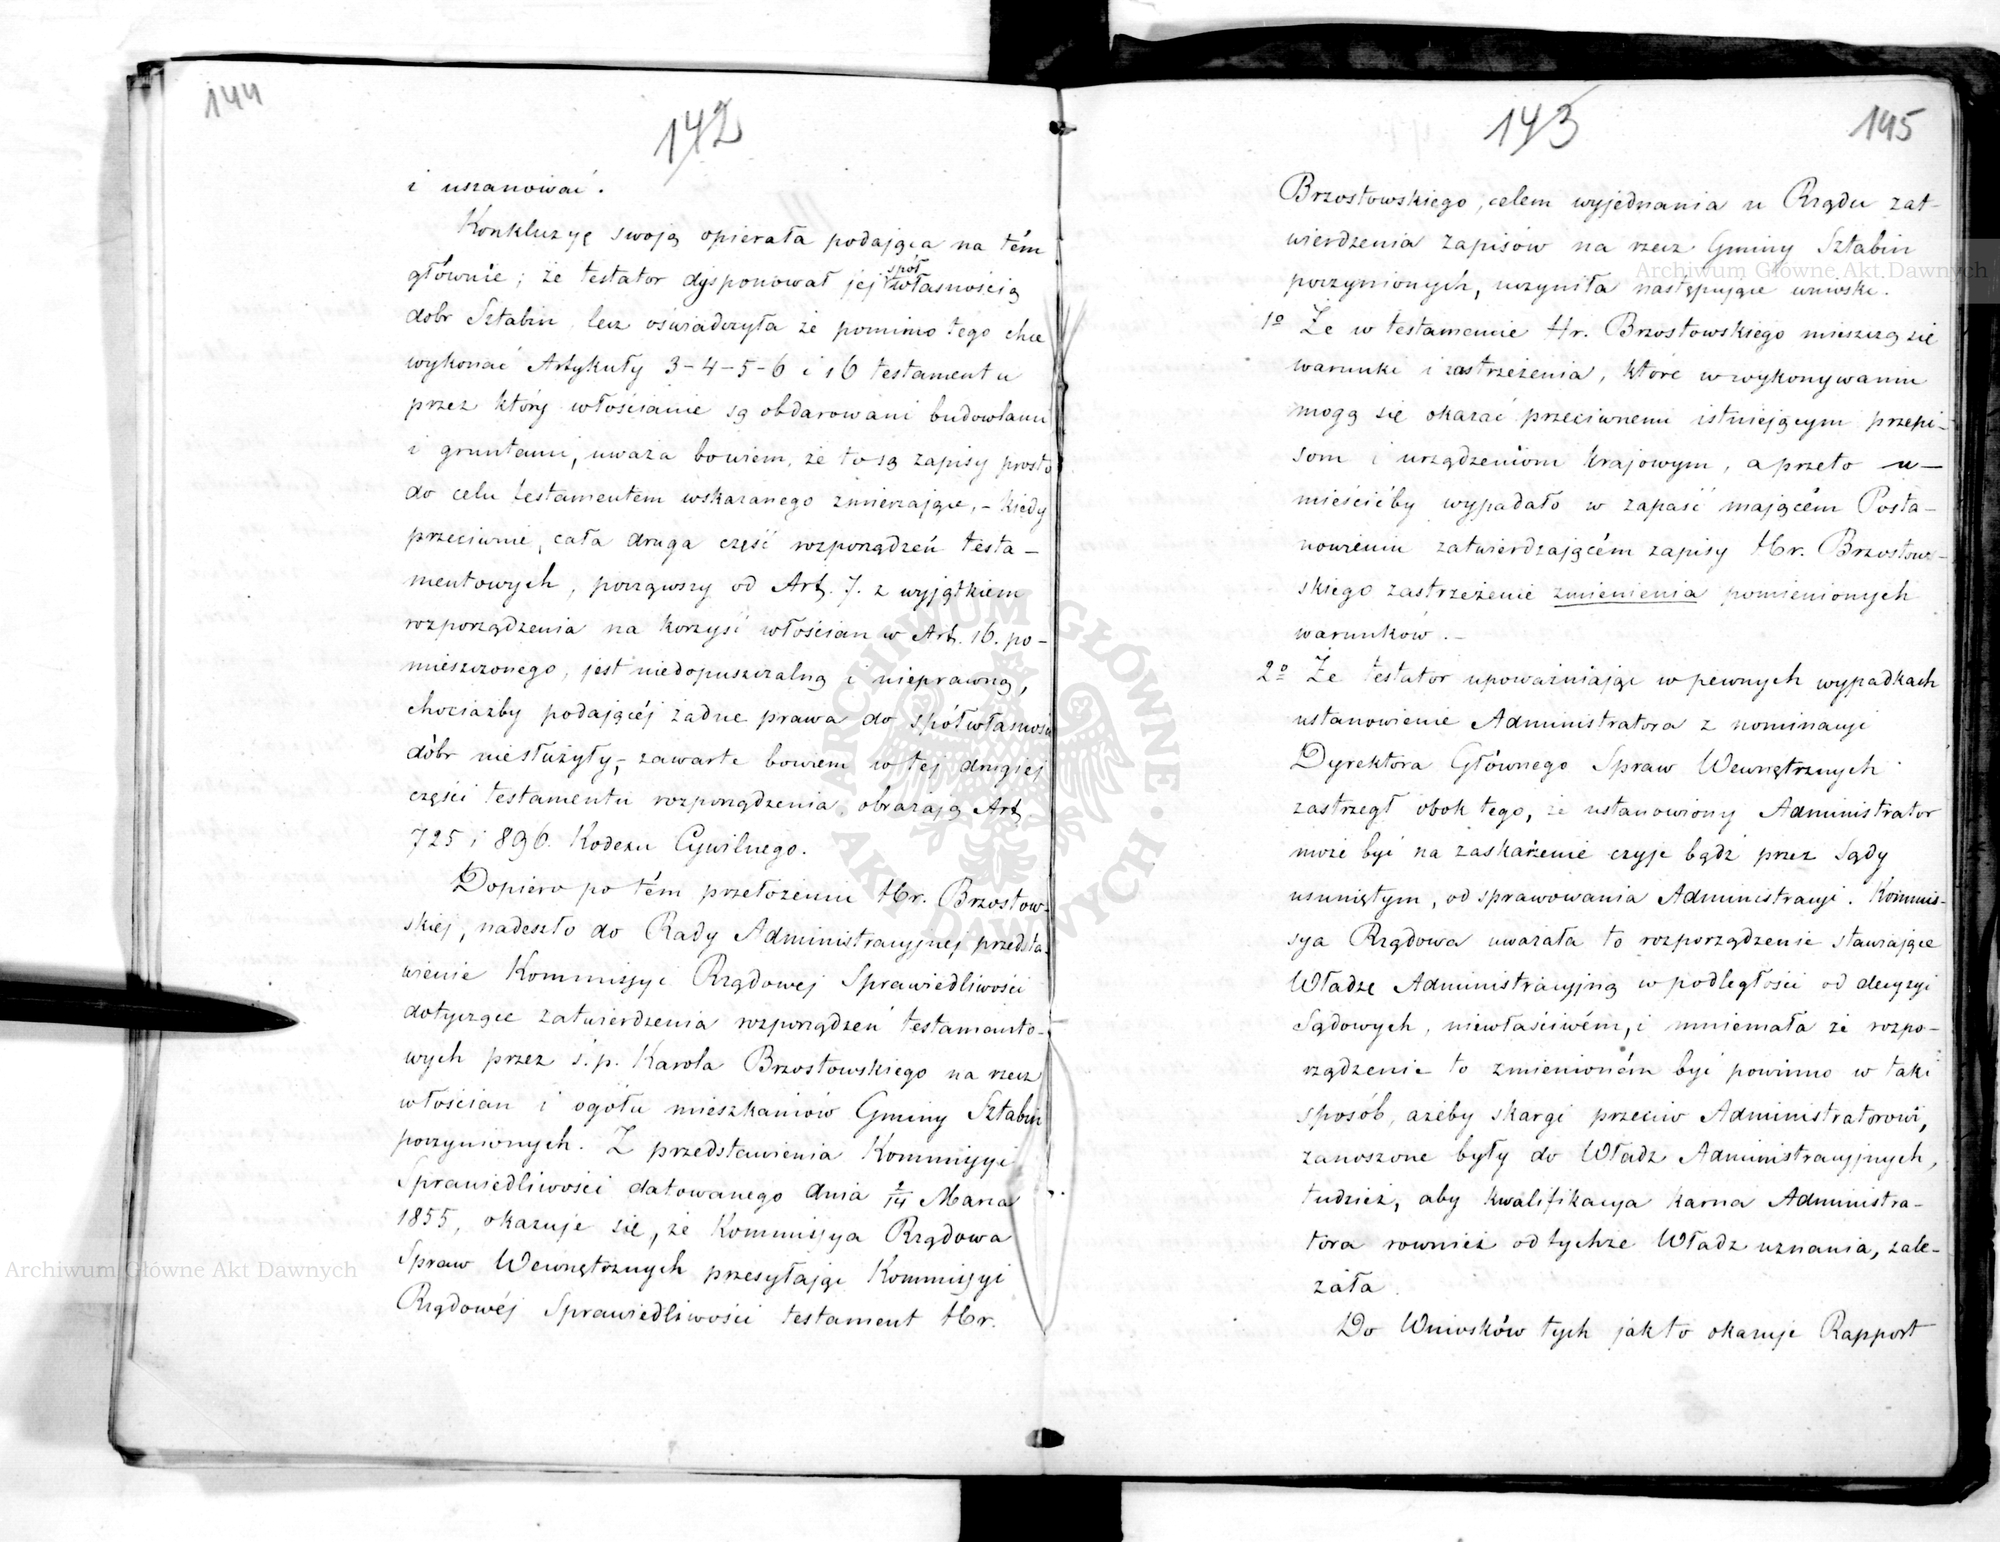 144
142
i uszanować.
Konkluzyę swoją opierała podająca na tém
głównie; że testator dysponował jej spół własnością
dobr Sztabin lecz oświadczyła że pomimo tego chce
wykonać Artykuły 3-4-5-6 i 16 testamentu
przez który włościanie są obdarowani budowlami
i gruntami, uważa bowiem, że to są zapisy prosto
do celu testamentem wskazanego zmierzające, - kiedy
przeciwnie, cała druga część rozporządzeń testa-
mentowych, począwszy od Art. 7. z wyjątkiem
rozporządzenia na korzyść włościan w Art. 16. po-
mieszczonego, jest niedopuszczalną i nieprawną,
chociażby podającéj żadne prawa do spółwłasności
dóbr niesłużyły, zawarte bowiem w tej drugiej
części testamentu rozporządzenia, obrażają Art.
725 i 896. Kodexu Cywilnego.
Dopiero po tém przełożeniu Hr. Brzostow-
skiej, nadeszło do Rady Administracyjnej przedsta-
wienie Kommissyi Rządowej Sprawiedliwości
dotyczące zatwierdzenia rozporządzeń testamento-
wych przez ś.p. Karola Brzostowskiego na rzecz
włościan i ogółu mieszkańców Gminy Sztabin
poczynionych. Z przedstawienia Kommissyi
Sprawiedliwości datowanego dnia 2/14 Marca
1855, okazuje się, że Kommissya Rządowa
Spraw Wewnętrznych przesyłając Kommissyi
Rządowéj Sprawiedliwości testament Hr.
143
145
Brzostowskiego, celem wyjednania u Rządu zat-
wierdzenia zapisów na rzecz Gminy Sztabin
poczynionych, uczyniła następujące wnioski.
1º Że w testamencie Hr. Brzostowskiego mieszczą się
warunki i zastrzeżenia, które w wykonywaniu
mogą się okazać przeciwnemi istniejącym przepi-
som i urządzeniom krajowym, a przeto u-
mieścićby wypadało w zapaść mającém Posta-
nowieniu zatwierdzającém zapisy Hr. Brzostow-
skiego zastrzeżenie zmienienia pomienionych
warunków.-
2º Że testator upoważniając w pewnych wypadkach
ustanowienie Administratora z nominacyi
Dyrektora Głównego Spraw Wewnętrznych
zastrzegł obok tego, że ustanowiony Administrator
może być na zaskarżenie czyje bądź przez Sądy
usuniętym, od sprawowania Administracyi. Kommis-
sya Rządowa uważała to rozporządzenie stawiające
Władzę Administracyjną w podległości od decyzyi
Sądowych, niewłaściwém, i mniemała że rozpo-
rządzenie to zmienioném być powinno w taki
sposób, ażeby skargi przeciw Administratorowi,
zanoszone były do Władz Administracyjnych,
tudzież, aby kwalifikacya karna Administra-
tora rownież od tychże Władz uznania, zale-
żała.
Do Wniosków tych jak to okazuje Rapport
Archiwum Główne Akt Dawnych
Archiwum Główne Akt Dawnych
ARCHIWUM GŁÓWNE AKT DAWNYCH